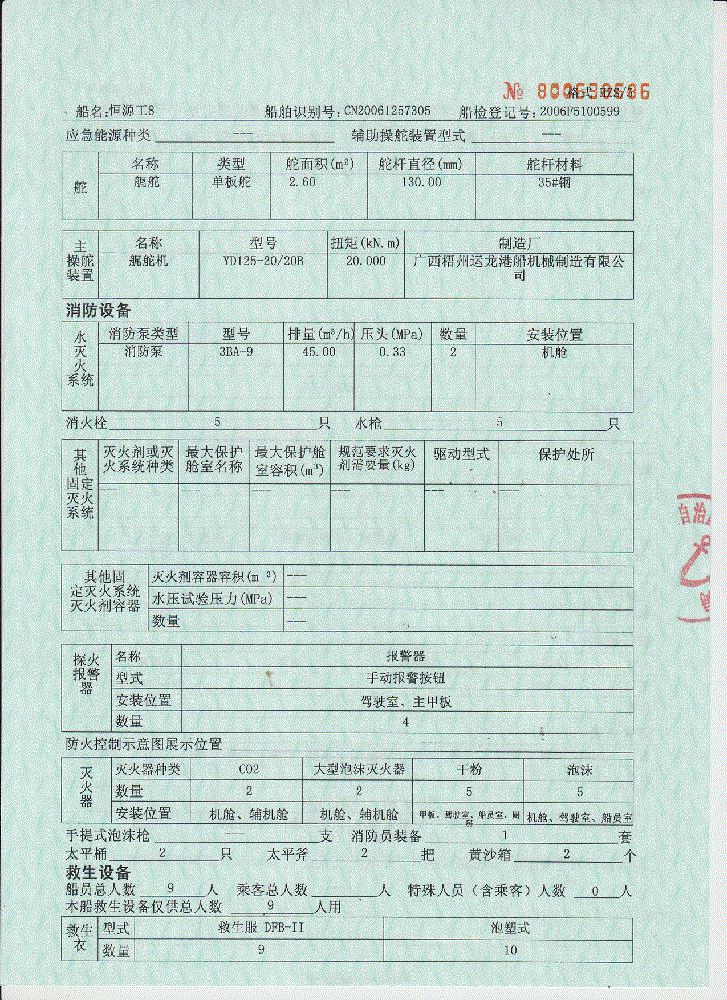 № 800650686
船名:恒源工8 船舶识别号:CN20061257305 船检登记号:2006F5100599
应急能源种类 --- 辅助操舵装置型式 ---
舵 名称 类型 舵面积(m²) 舵杆直径(mm) 舵杆材料
艉舵 单板舵 2.60 130.00 35#钢
主操舵装置 名称 型号 扭矩(kN.m) 制造厂
艉舵机 YD125-20/20B 20.000 广西梧州运龙港船机械制造有限公司
消防设备
水灭火系统 消防泵类型 型号 排量(m³/h) 压头(MPa) 数量 安装位置
消防泵 3BA-9 45.00 0.33 2 机舱
消火栓 5 只 水枪 5 只
其他固定灭火系统 灭火剂或灭火系统种类 最大保护舱室名称 最大保护舱室容积(m³) 规范要求灭火剂需要量(kg) 驱动型式 保护处所
--- --- --- --- --- ---
其他固定灭火系统灭火剂容器 灭火剂容器容积(m³) ---
水压试验压力(MPa) ---
数量 ---
探火报警器 名称 报警器
型式 手动报警按钮
安装位置 驾驶室、主甲板
数量 4
防火控制示意图展示位置
灭火器 灭火器种类 CO2 大型泡沫灭火器 干粉 泡沫
数量 2 2 5 5
安装位置 机舱、辅机舱 机舱、辅机舱 甲板、驾驶室、船员室、厨房 机舱、驾驶室、船员室
手提式泡沫枪 --- 支 消防员装备 1 套
太平桶 2 只 太平斧 2 把 黄沙箱 2 个
救生设备
船员总人数 9 人 乘客总人数 人 特殊人员(含乘客)人数 0 人
本船救生设备仅供总人数 9 人用
救生衣 型式 救生服 DFB-II 泡塑式
数量 9 10
自治